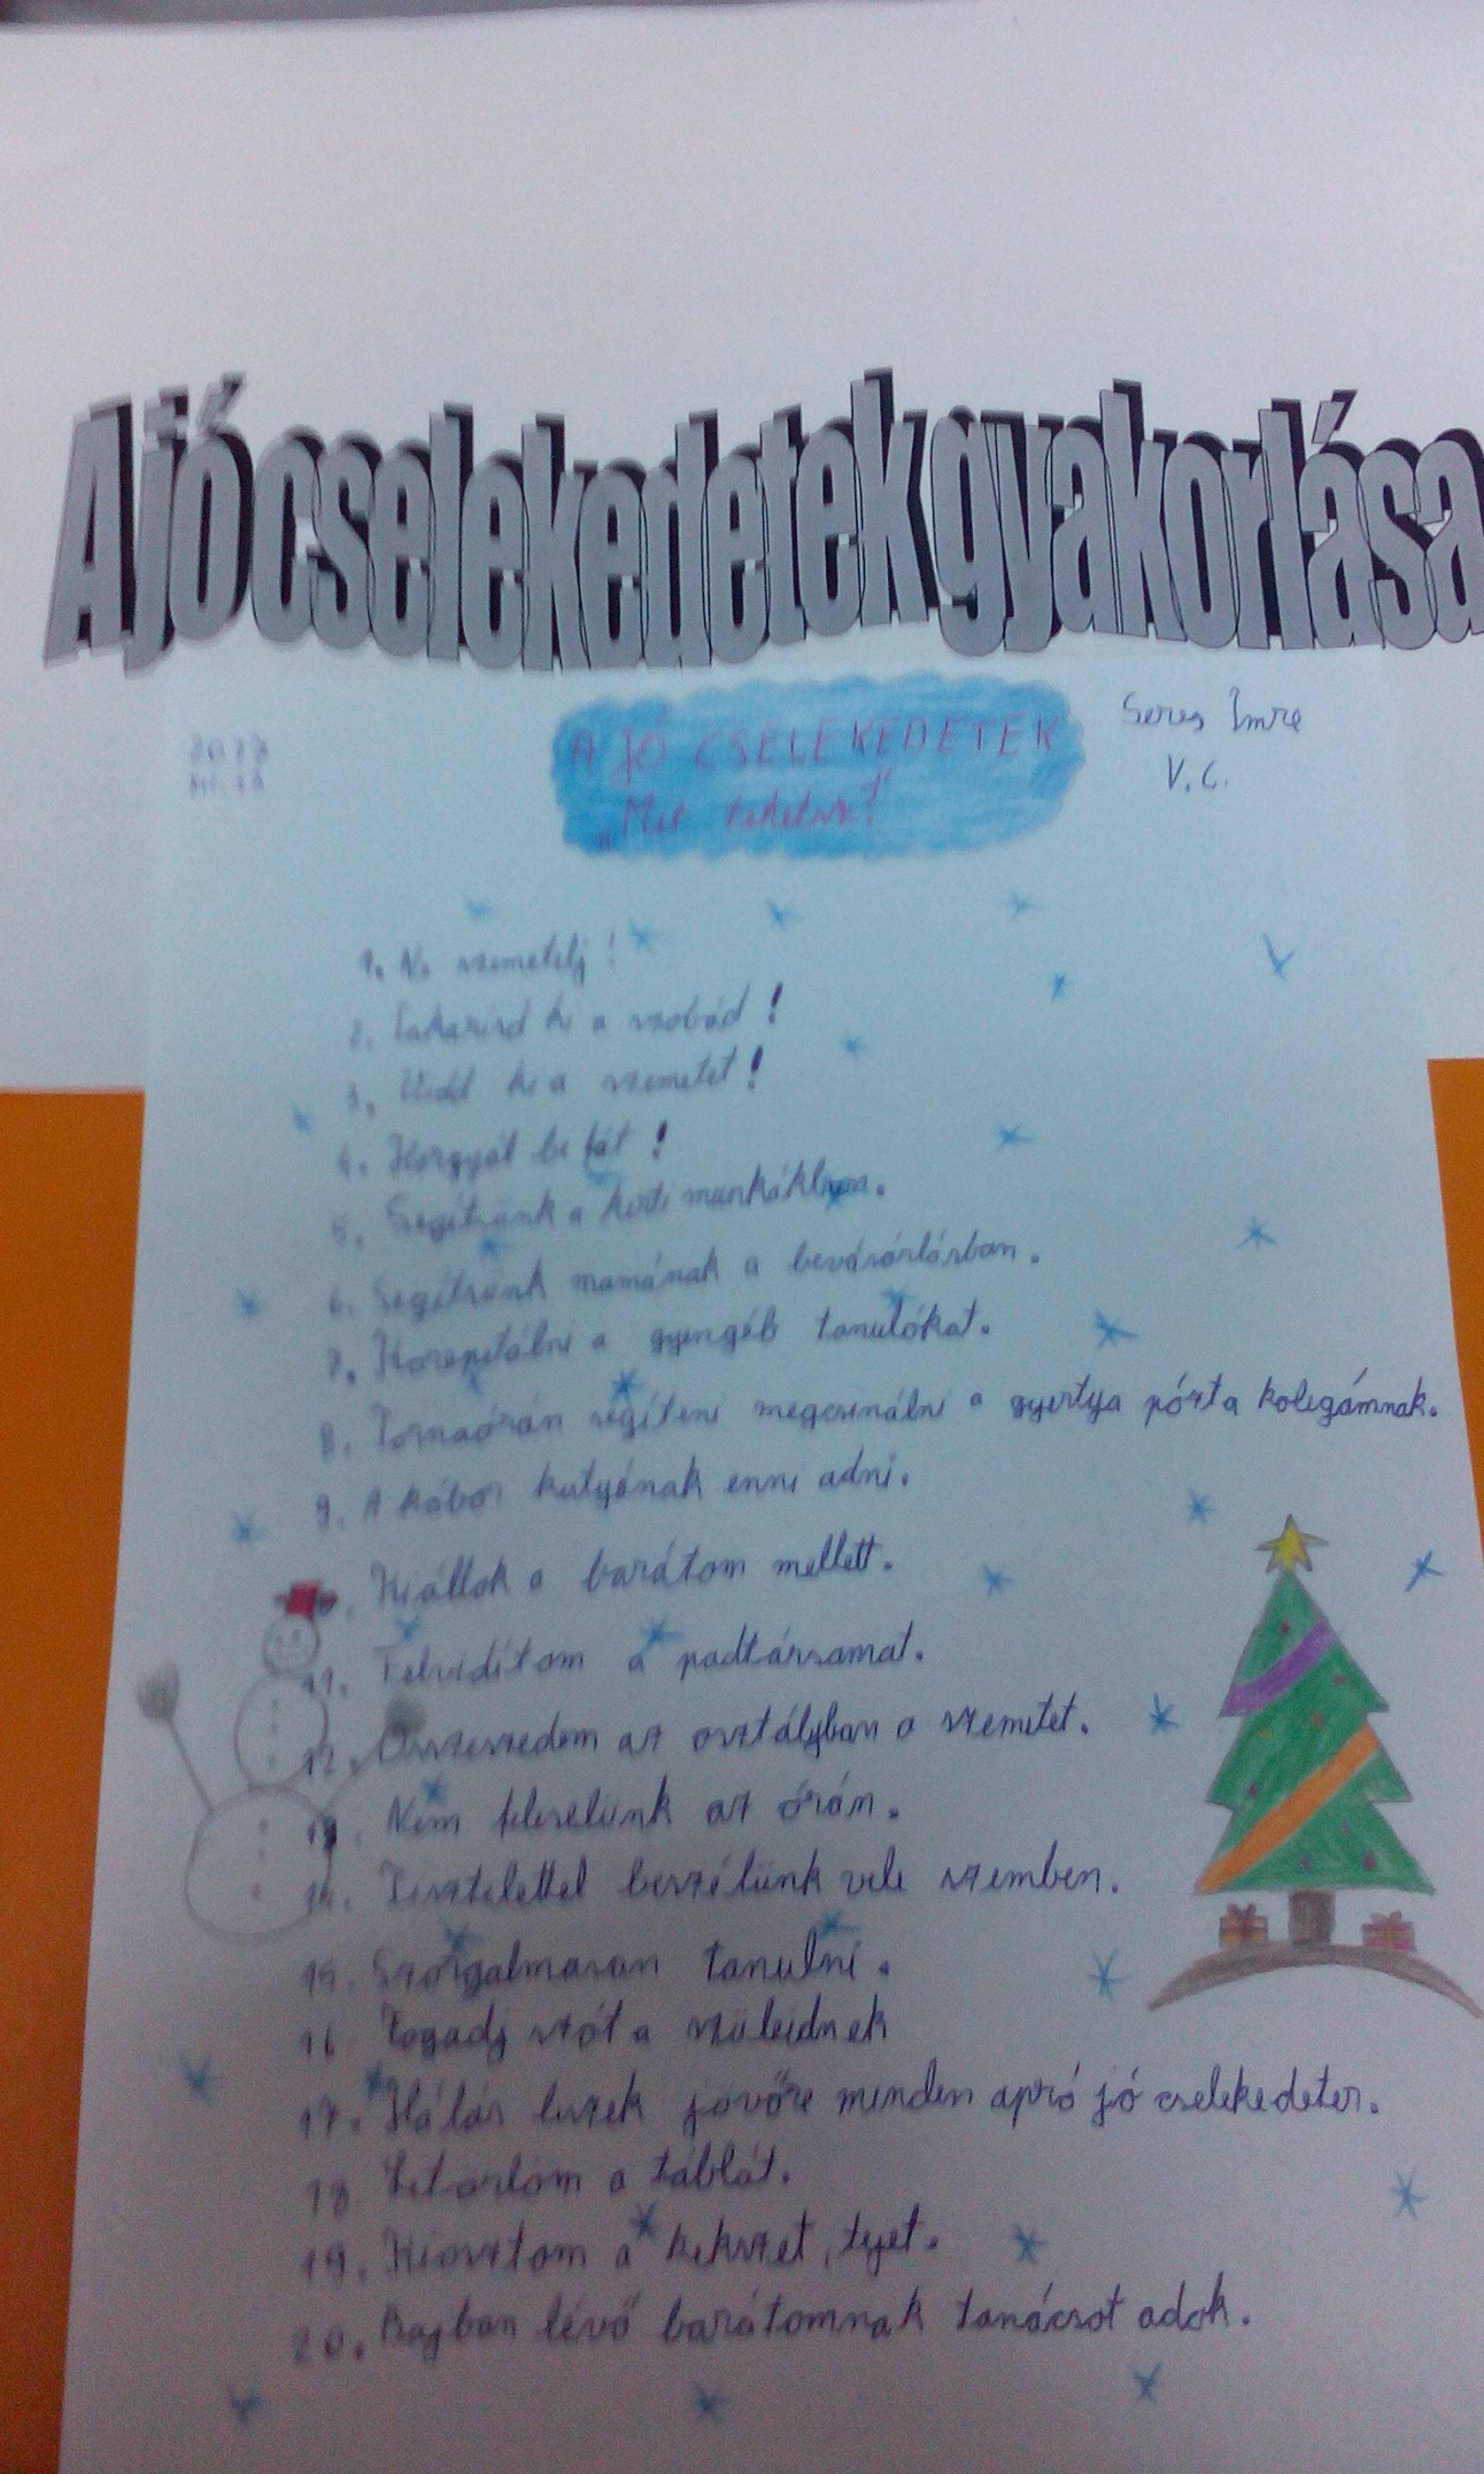 A jó cselekedetek gyakorlása
Seres Imre
V. C.
A JÓ CSELEKEDETEK
„Mit tehetsz?"
1. Ne szemetelj!
2. Takarísd ki a szobád!
3. Vidd ki a szemetet!
4. Horgyál be fát!
5. Segítsünk a kerti munkákban.
6. Segítsünk mamának a bevásárlásban.
7. Korepetálni a gyengéb tanulókat.
8. Tornaórán segíteni megcsinálni a gyertya pózta kolegámnak.
9. A kóbor kutyának enni adni.
10. Kiállok a barátom mellett.
11. Felvidítom a padtársamat.
12. Összeszedem az osztályban a szemetet.
13. Nem feleselünk az órán.
14. Tisztelettel beszélünk vele szemben.
15. Szorgalmasan tanulni.
16 Fogadj szót a szüleidnek
17. Hálás leszek jövőre minden apró jó cselekedeter.
18 Letörlöm a táblát.
19. Kiosztom a kekszet, tejet.
20. Bajban lévő barátomnak tanácsot adok.